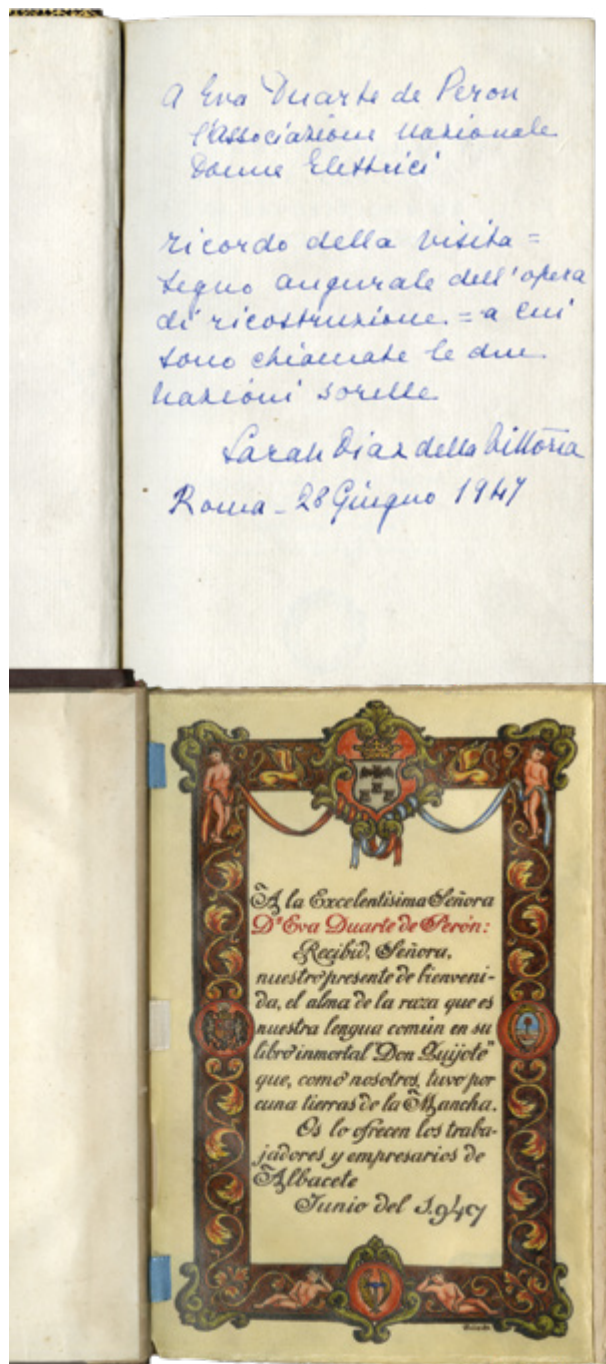 A Eva Duarte de Peron
l'Associazione Nazionale
Donne Elettrici
ricordo della visita =
segno augurale dell'opera
di ricostruzione = a cui
sono chiamate le due
Nazioni sorelle
Sarah Diaz della Vittoria
Roma - 28 Giugno 1947
A la Excelentisima Señora
Dª Eva Duarte de Perón:
Recibid, Señora,
nuestro presente de bienveni-
da, el alma de la raza que es
nuestra lengua común en su
libro inmortal "Don Quijote"
que, como nosotros, tuvo por
cuna tierras de la Mancha.
Os lo ofrecen los traba-
jadores y empresarios de
Albacete
Junio del 1.947